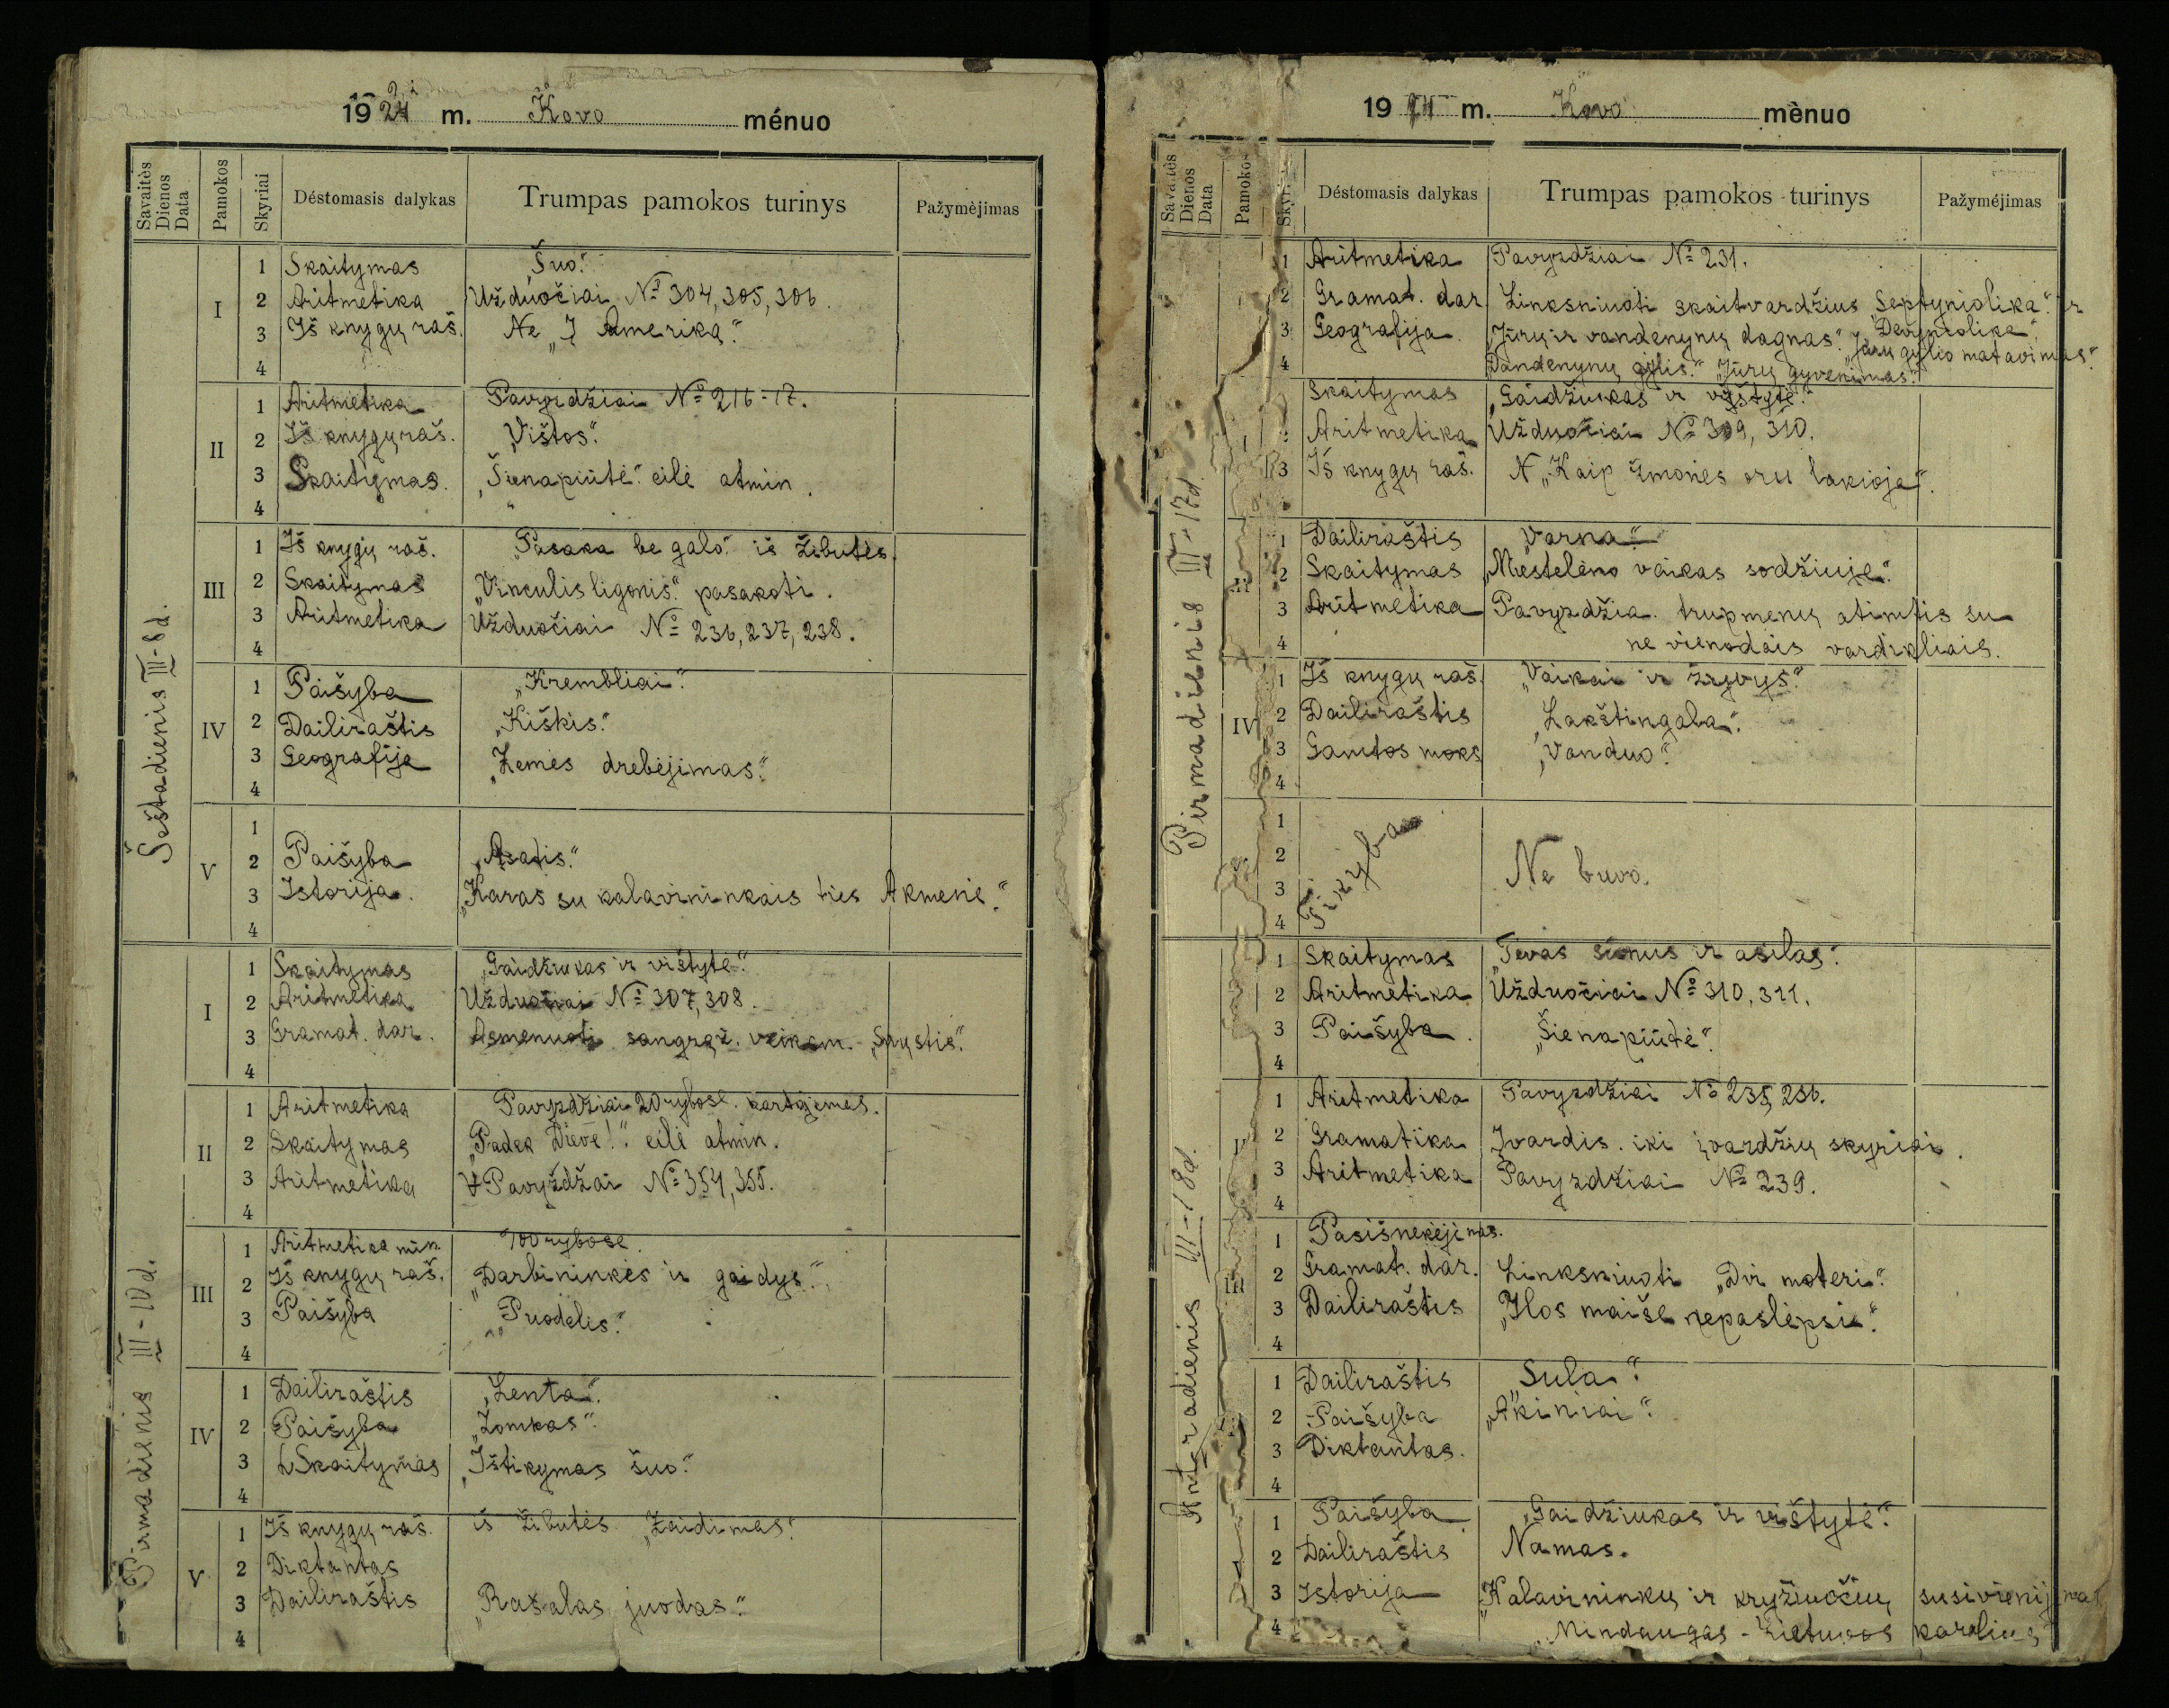 1924 m. Kovo ménuo
Savaitės Dienos Data
Pamokos
Skyriai
Déstomasis dalykas
Trumpas pamokos turinys
Pažymėjimas
Šeštadienis III-8 d.
I
1 Skaitymas „Šuo."
2 Aritmetika Užduočiai № 304, 305, 306.
3 Iš knygų raš. Ne „Į Ameriką."
4
II
1 Aritmetika Pavyzdžiai № 216-17.
2 Iš knygų raš. „Vištos."
3 Skaitymas. „Šienapiūtė." eilė atmin.
4
III
1 Iš knygų raš. „Pasaka be galo." iš Žibutės.
2 Skaitymas „Vinculis ligonis." pasakoti.
3 Aritmetika Užduočiai № 236, 237, 238.
4
IV
1 Paišyba „Krembliai."
2 Dailiraštis „Kiškis."
3 Geografija „Žemės drebėjimas."
4
V
1
2 Paišyba „Asatis."
3 Istorija. „Karas su kalavininkais ties Akmene."
4
Pirmadienis III-10 d.
I
1 Skaitymas „Gaidžiukas ir vištytė."
2 Aritmetika Užduočiai № 307, 308.
3 Gramat. dar. Asmenuoti sangrąž. veiksm.
4
II
1 Aritmetika Pavyzdžiai 20 rybose.
2 Skaitymas „Padėk Dieve!" eilė atmin.
3 Aritmetika Pavyždžai № 354, 355.
4
III
1 Aritmetika min. 100 rybose.
2 Iš knygų raš. „Darbininkės ir gaidys."
3 Paišyba „Puodelis."
4
IV
1 Dailiraštis „Lenta."
2 Paišyba
3 Skaitymas „Ištikymas šuo."
4
V
1 Iš knygų raš. iš Žibutės „Žaidimas."
2 Diktantas
3 Dailiraštis „Rašalas juodas."
4
1924 m. Kovo mènuo
Savaitės Dienos Data
Pamokos
Skyr
Déstomasis dalykas
Trumpas pamokos turinys
Pažyméjimas
Pirmadienis III-17 d.
1 Aritmetika Pavyzdžiai № 231.
2 Gramat. dar. Linksniuoti skaitvardžius „Septyniolika." ir „Devyniolika."
3 Geografija „Jūrų ir vandenynų dagnas." „Jūrų gylio matavimas."
4 „Vandenynų gylis." „Jūrų gyvenimas."
Skaitymas „Gaidžiukas ir vištytė."
Aritmetika Užduočiai № 309, 310.
3 Iš knygų raš. N „Kaip žmonės oru lakioja".
III
1 Dailiraštis „Varna."
2 Skaitymas „Mestelėno vaikas sodžiuje."
3 Aritmetika Pavyzdžia. trupmenų atimtis su
4 ne vienodais vardikliais.
IV
1 Iš knygų raš. „Vaikai ir žvyrys."
2 Dailiraštis „Lakštingala."
3 Gamtos moks „Vanduo."
4
1
2
3
4
Tikyba Ne buvo.
Antradienis III-18 d.
1 Skaitymas „Tėvas sūnus ir asilas."
2 Aritmetika Užduočiai № 310, 311.
3 Paišyba. „Šienapiūtė".
4
1 Aritmetika Pavyzdžiai № 235, 236.
2 Gramatika Įvardis. iki įvardžių skyriai.
3 Aritmetika Pavyzdžiai № 239.
4
III
1 Pasišnekėjimas.
2 Gramat. dar. Linksniuoti „Dvi moteri."
3 Dailiraštis „Ylos maiše nepaslėpsi."
4
1 Dailiraštis „Sula."
2 Paišyba „Akiniai".
3 Diktantas.
4
1 Paišyba „Gaidžiukas ir vištytė."
2 Dailiraštis Namas.
3 Istorija „Kalavininkų ir kryžiuočių susivienijimas
4 „Mindaugas - Lietuvos karalius"